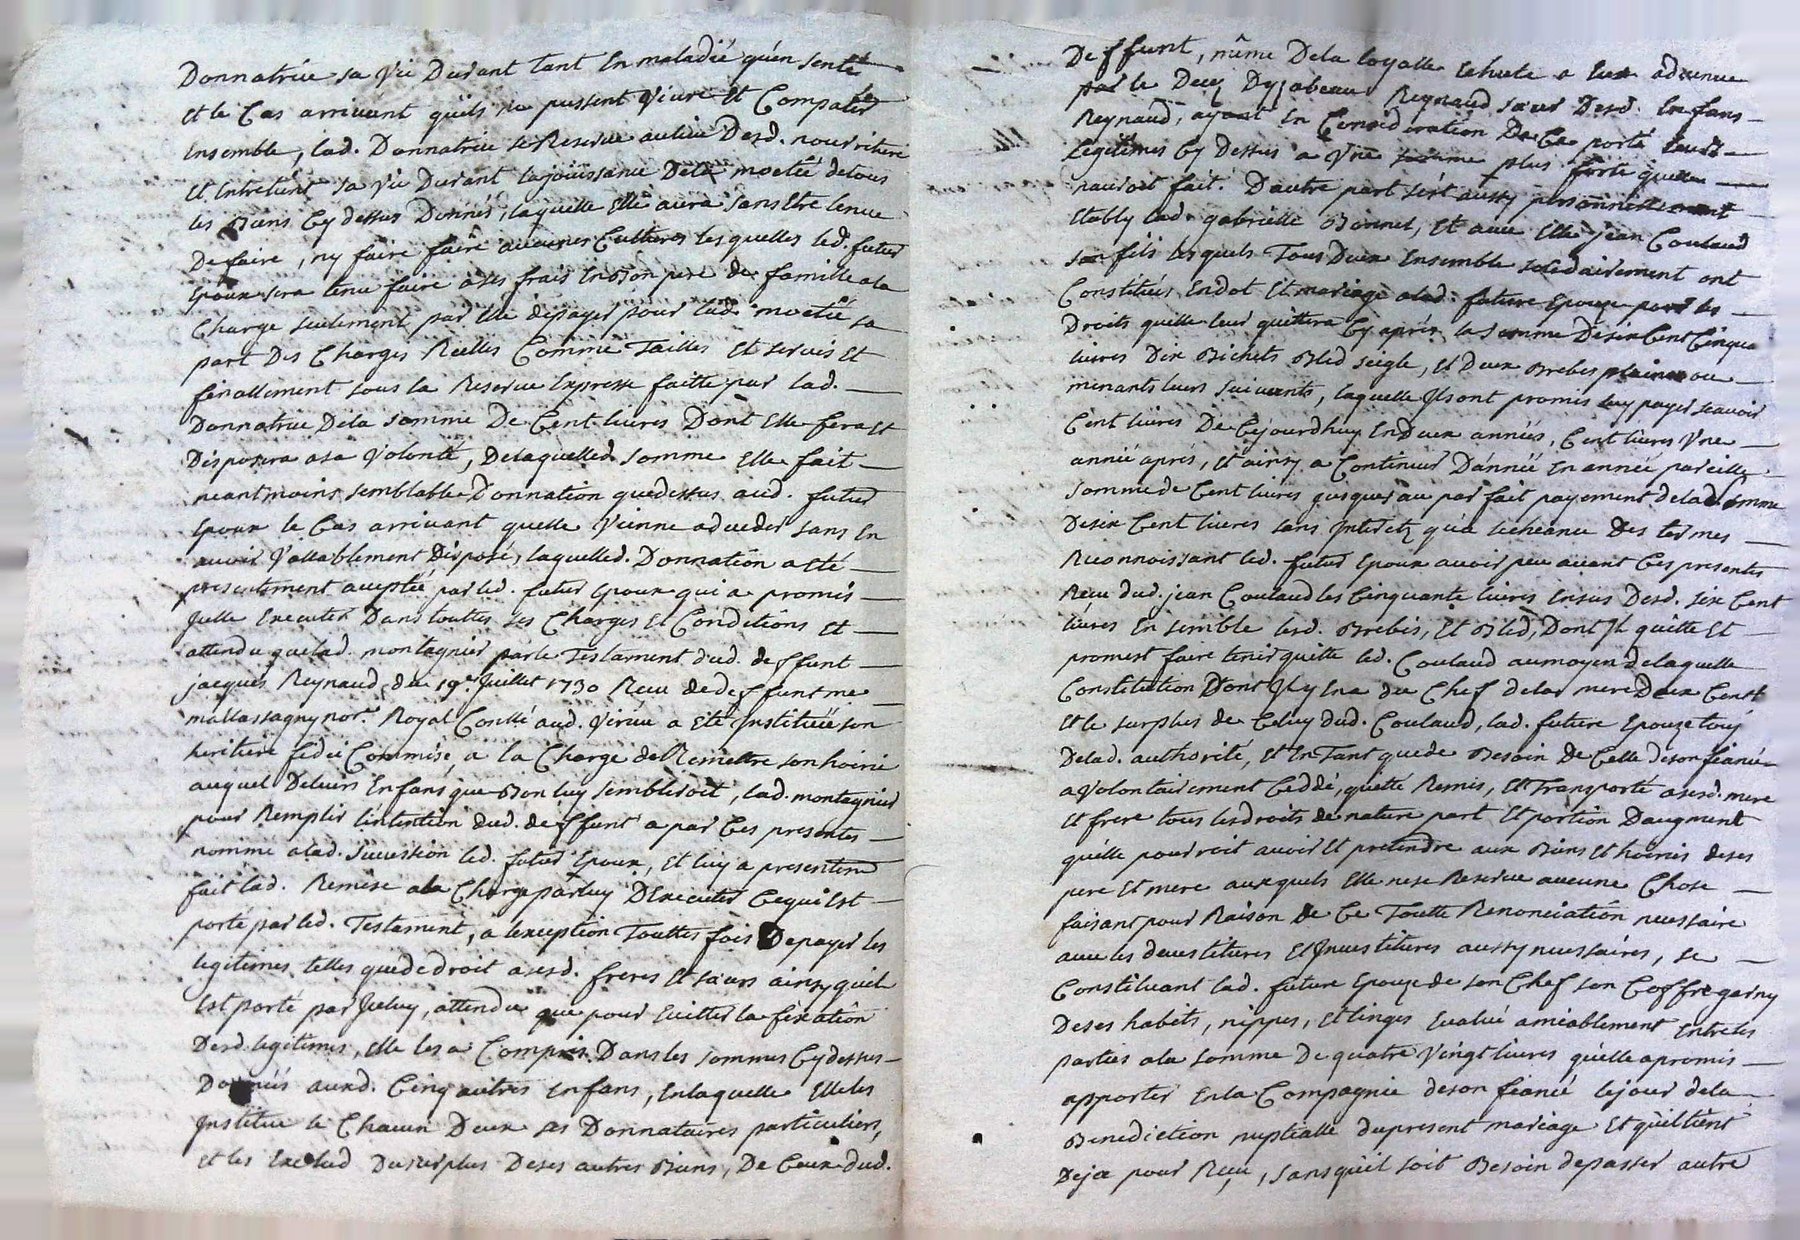 Donnatrice sa Vie Durant tant En maladie qu'en senté
et le Cas arrivant qu'ils ne pussent Vivre Et Compatir
Ensemble, lad. Donnatrice se Reserve au lieu Desd. nourriture
Et Entretient sa Vie Durant la jouissance Dela moetié detous
les Biens Cy dessus Donnés, laquelle Elle aura sans Etre tenue
De faire, ny faire faire aucunes Cultures lesquelles led. futur
Epoux sera tenu faire a ses frais En Bon pere de famille ala
Charge seulement par Elle de payer pour lad. moetié sa
part Des Charges Reelles Comme Tailles Et servis Et
finallement sous la Reserve Expresse faitte par lad.
Donnatrice Dela somme De Cent livres Dont Elle fera Et
Disposera a sa Volonté, De laquelled. somme Elle fait
neantmoins semblable Donnation que dessus aud. futur
Epoux le Cas arrivant quelle Vienne a deceder sans En
avoir Vallablement Disposé, laquelled. Donnation a Eté
presentement acceptée par led. futur Epoux qui a promis
Jcelle Executer Dans touttes ses Charges Et Conditions Et
attendu que lad. montagnier par le Testament dud. deffunt
jacques Reynaud, du 19e. Juillet 1730 Receu de deffunt me
mallassagny nor. Royal aud. Virieu a Eté Instituée son
heritiere fidei Commise, a la Charge de Remettre son hoirie
auquel De leurs Enfans que Bon luy sembleroit, lad. montagnier
pour Remplir l'intention dud. deffunt a par Ces presentes
nommé a lad. succession led. futur Epoux, Et luy a presentemt
fait lad. Remise ala Charge par luy D'Executer Ce qui Est
porté par led. Testament, a l'exception Touttes fois De payer les
legitimes telles que de droit a sesd. freres Et sœurs ainsy qu'il
Est porté par Jceluy, attendu que pour Eviter la fixation
Desd. legitimes, Elle les a Compris Dans les sommes Cy dessus
Données auxd. Cinq autres Enfans, En laquelle Elle les
Institue le Chacun Deux ses Donnataires particuliers,
et les Exclud Du surplus De ses autres Biens, De Ceux dud.
Deffunt, même Dela loyalle Echute a Eux advenue
par le Decez Dyzabeau Reynaud sœur Desd. Enfans
Reynaud, ayant En Consideration De Ce porté
legitimes Cy Dessus a Vne somme plus forte quelle
nauroit fait. D'autre part s'est aussy personnellement
Etably lad. gabrielle Bonnet, Et avec Elle jean Coulaud
son fils lesquels Tous Deux Ensemble solidairement ont
Constitués En dot Et mariage alad. future Epouze pour les
Droits quelle leur quittera Cy aprés la somme De six Cent Cinqte
livres Dix Bichets Bled seigle, Et Deux Brebis plaines ou
menants leurs suivants, laquelle Jls ont promis luy payer scavoir
Cent livres De Cejourdhuy En Deux années, Cent livres Vne
année aprés, Et ainsy a Continuer D'année En année pareille
somme de Cent livres jusques au parfait payement delad. somme
De six Cent livres sans Interetz qu'a l'echeance Des termes
Reconnoissant led. futur Epoux avoir peu avant Ces presentes
Receu dud. jean Coulaud les Cinquante livres En sus Desd. six Cent
livres Ensemble lesd. Brebis, Et Bled, Dont Jl quitte Et
promest faire tenir quitte led. Coulaud au moyen de laquelle
Constitution Dont Jl y En a du Chef dela mere Deux Cent
Et le surplus de Celuy dud. Coulaud, lad. future Epouze
Delad. authorité, Et En Tant que de Besoin De Celle de son fiancé
a Volontairement Ceddé, quitté Remis, Et Transporté a sesd. mere
Et frere tous les droits de nature part Et portion D'augment
qu'elle pourroit avoir Et pretendre aux Biens Et hoiries de ses
pere Et mere auxquels Elle ne se Reserve aucune Chose
faisant pour Raison de Ce Toutte Renonciation necessaire
avec les devestitures Et Jnvestitures aussy necessaires, se
Constituant lad. future Epouze de son Chef son Coffre garny
De ses habits, nippes, Et linges Evalué amiablement Entre les
parties ala somme De quatre Vingt livres qu'elle a promis
apporter En la Compagnie de son fiancé le jour dela
Benediction nuptialle du present mariage Et qu'il tient
Deja pour Receu, sans qu'il soit Besoin de passer autre